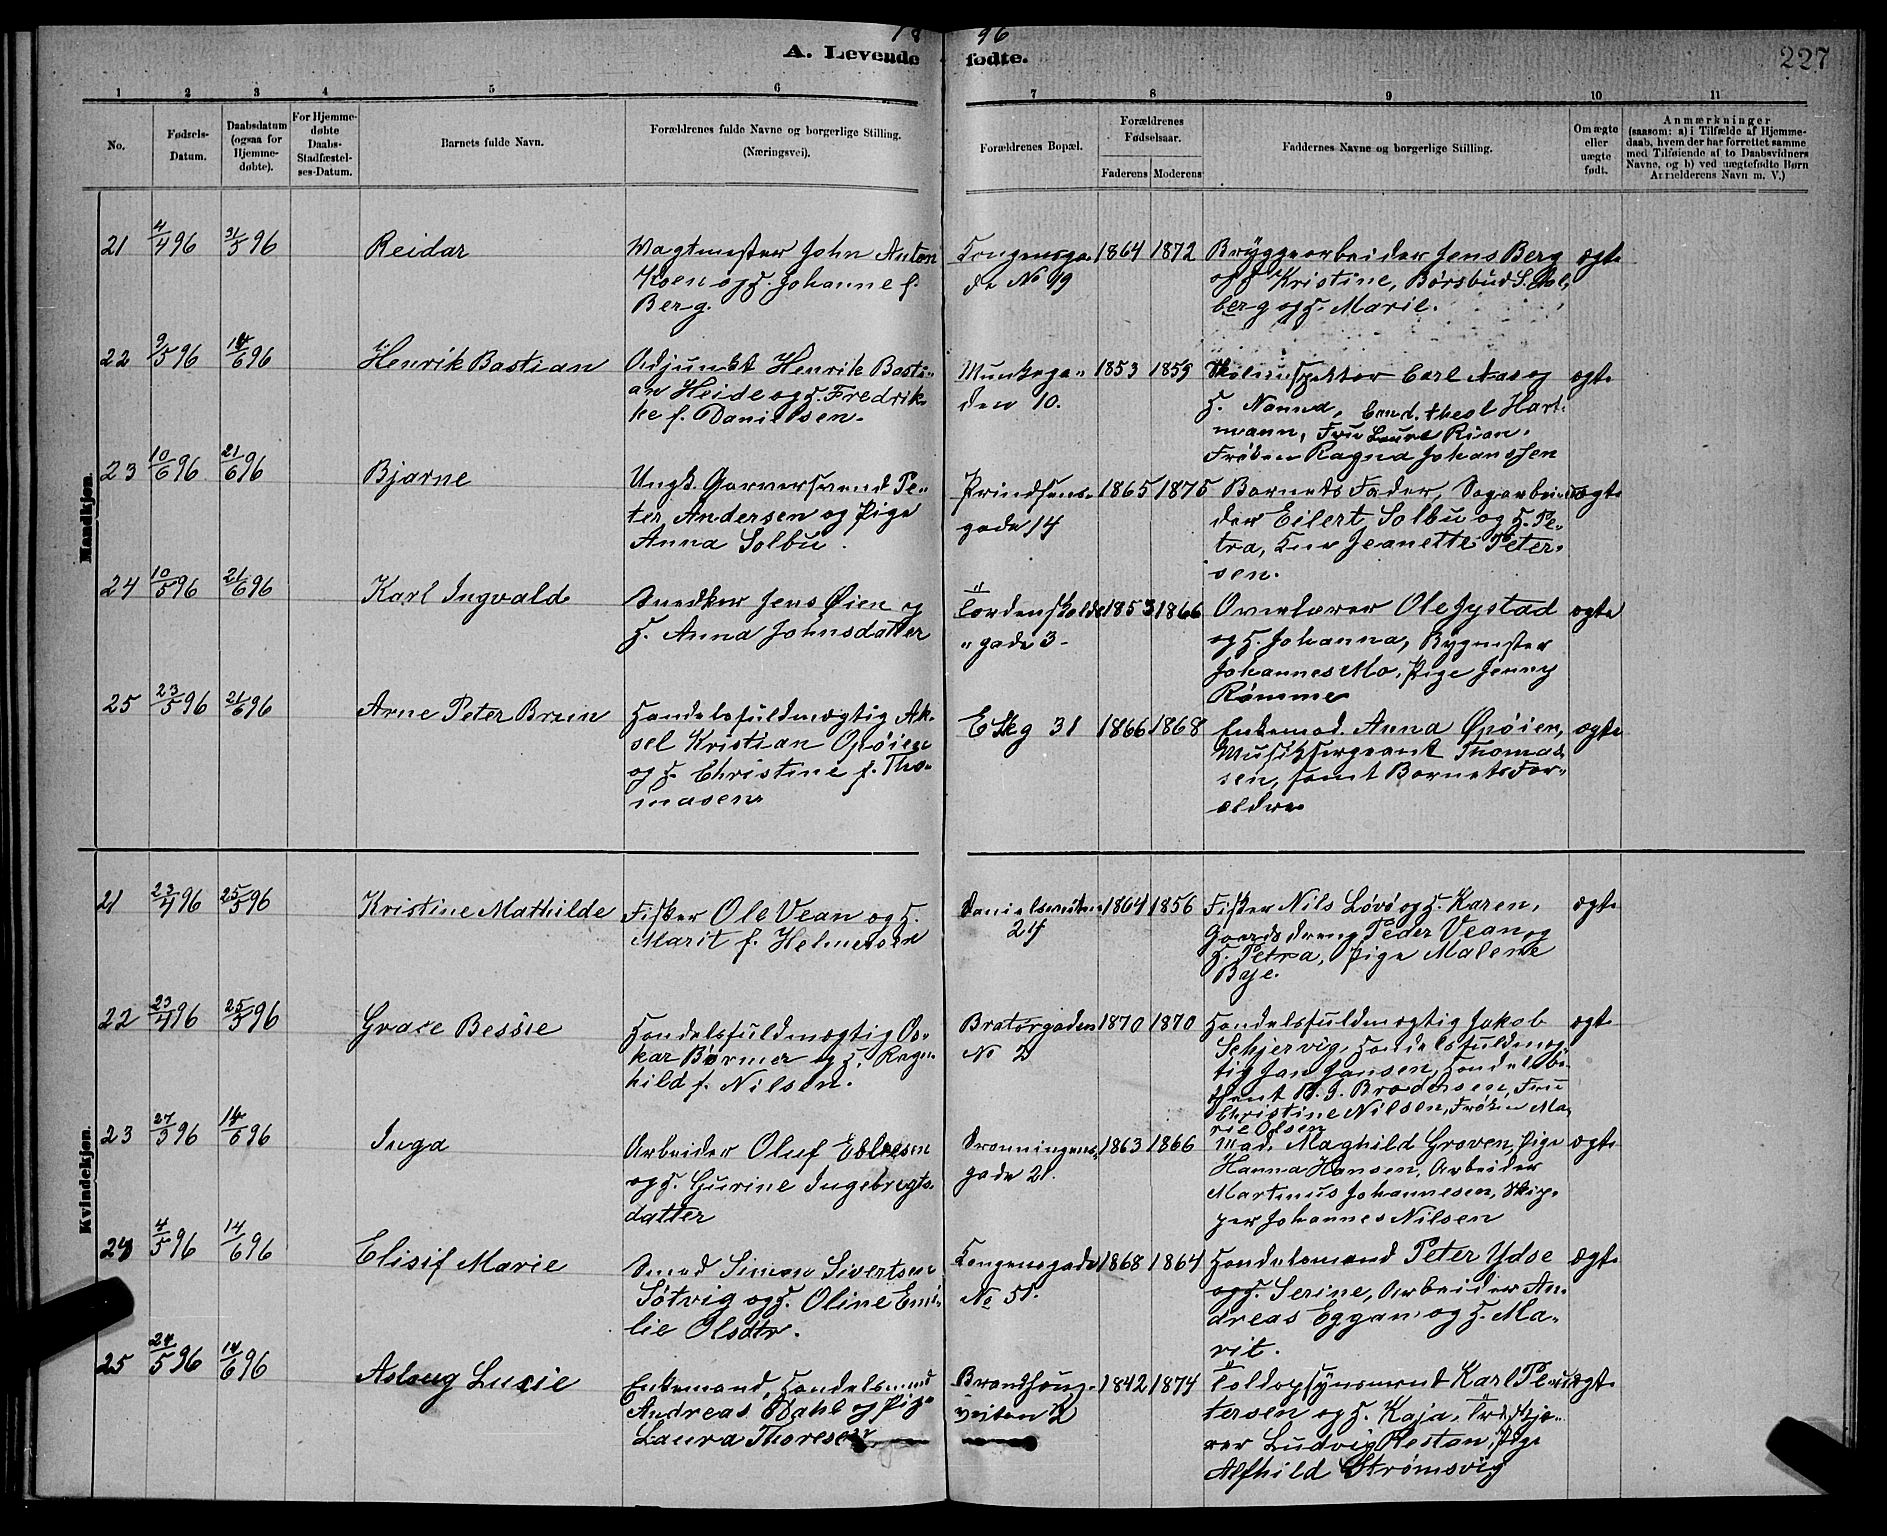 18 96
A. Levende fødte.
227
1 2 3 4 5 6 7 8 9 10 11
No.
Fødsels-
Datum.
Daabsdatum
(ogsaa for
Hjemme-
døbte).
For Hjemme-
døbte
Daabs-
Stadfæstel-
ses-Datum.
Barnets fulde Navn.
Forældrenes fulde Navne og borgerlige Stilling.
(Næringsvei).
Forældrenes Bopæl.
Forældrenes
Fødselsaar.
Faderens Moderens
Faddernes Navne og borgerlige Stilling.
Om ægte
eller
uægte
født.
Anmærkninger
(saasom: a) i Tilfælde af Hjemme-
daab, hvem der har forrettet samme
med Tilføiende af to Daabsvidners
Navne, og b) ved uægtefødte Børn
Anmelderens Navn m. V.)
Mandkjøn.
21 4/4 96 31/5 96 Reidar
Vagtmester John Anton
Koen og H. Johanne f.
Berg.
Kongensga-
de No 19
1864 1872
Bryggearbeider Jens Berg
og H Kristine, Børsbud S.
berg og H. Marie.
ægte
22 9/5 96 14/6 96 Henrik Bastian
Adjunkt Henrik Basti-
an Heide og H. Fredrik-
ke f. Danielsen.
Munkega-
den 10.
1853 1859
Skoleinspektør Carl Aas og
H. Nanna, Cand. theol Hart-
mann, Fru Laura Rian,
Frøken Ragna Johanssen
ægte
23 10/6 96 21/6 96 Bjarne
Ungk. Garversvend Pe-
ter Andersen og Pige
Anna Solbu.
Prindsens-
gade 14
1865 1875
Barnets Fader, Sagarbei-
der Eilert Solbu og H. Pe-
tra, Frue Jeanette Peter-
sen.
uægte
24 10/5 96 21/6 96 Karl Ingvald
Snedker Jens Øien og
H. Anna Johnsdatter
Tordenskjolds
gade 3-
1853 1866
Overlærer Ole Jystad
og H. Johanna, Bygmester
Johannes Mo, Pige Jenny
Rømme
ægte
25 23/5 96 21/6 96 Arne Peter Brun
Handelsfuldmægtig Ak-
sel Kristian Opøien
og H. Christine f. Tho-
masen
E Skg 31
1866 1868
Enkemad. Anna Opøien,
Musiksergeant Thomas-
sen, samt Barnets For-
ældre
ægte
Kvindekjøn.
21 23/4 96 25/5 96 Kristine Mathilde
Fisker Ole Vean og H.
Marit f. Helmersen
Danielsveiten
24
1864 1856
Fisker Nils Løvø og H. Karen,
Gaardsdreng Peder Vean og
H. Petra, Pige Malene
Bye.
ægte
22 23/4 96 25/5 96 Grace Bessie
Handelsfuldmægtig Os-
kar Børmer og H. Ragn-
hild f. Nilsen.
Bratørgaden
No 2
1870 1870
Handelsfuldmægtig Jakob
Schjervig, Handelsfuldmæg-
tig Jan Jansen, Handelsbe-
tjent B. J. Brodersen, Fru
Christine Nilsen, Frøken Ma-
rie Olsen
ægte
23 27/3 96 14/6 96 Inga
Arbeider Oluf Ebbesen
og H. Gurine Ingebregts-
datter
Dronningens-
gade 21.
1863 1866
Mad. Maghild Groven, Pige
Hanna Hansen, Arbeider
Martinus Johannesen, Skip-
per Johannes Nilsen
ægte
24 4/5 96 14/6 96 Elisif Marie
Smed Simon Sivertsen
Søtvig og H. Oline Emi-
lie Olsdtr.
Kongensgade
No 51.
1868 1864
Handelsmand Peter Ydse
og H. Serine, Arbeider An-
dreas Eggan og H. Ma-
rit.
ægte
25 24/5 96 14/6 96 Aslaug Lucie
Enkemand, Handelsmand
Andreas Dahl og Pige
Laura Thoresen
veiten 2
1842 1874
Toldopsynsmand Karl Pe-
tersen og H. Kaja,
Ludvig Restan, Pige
Alfhild Strømsvig
uægte